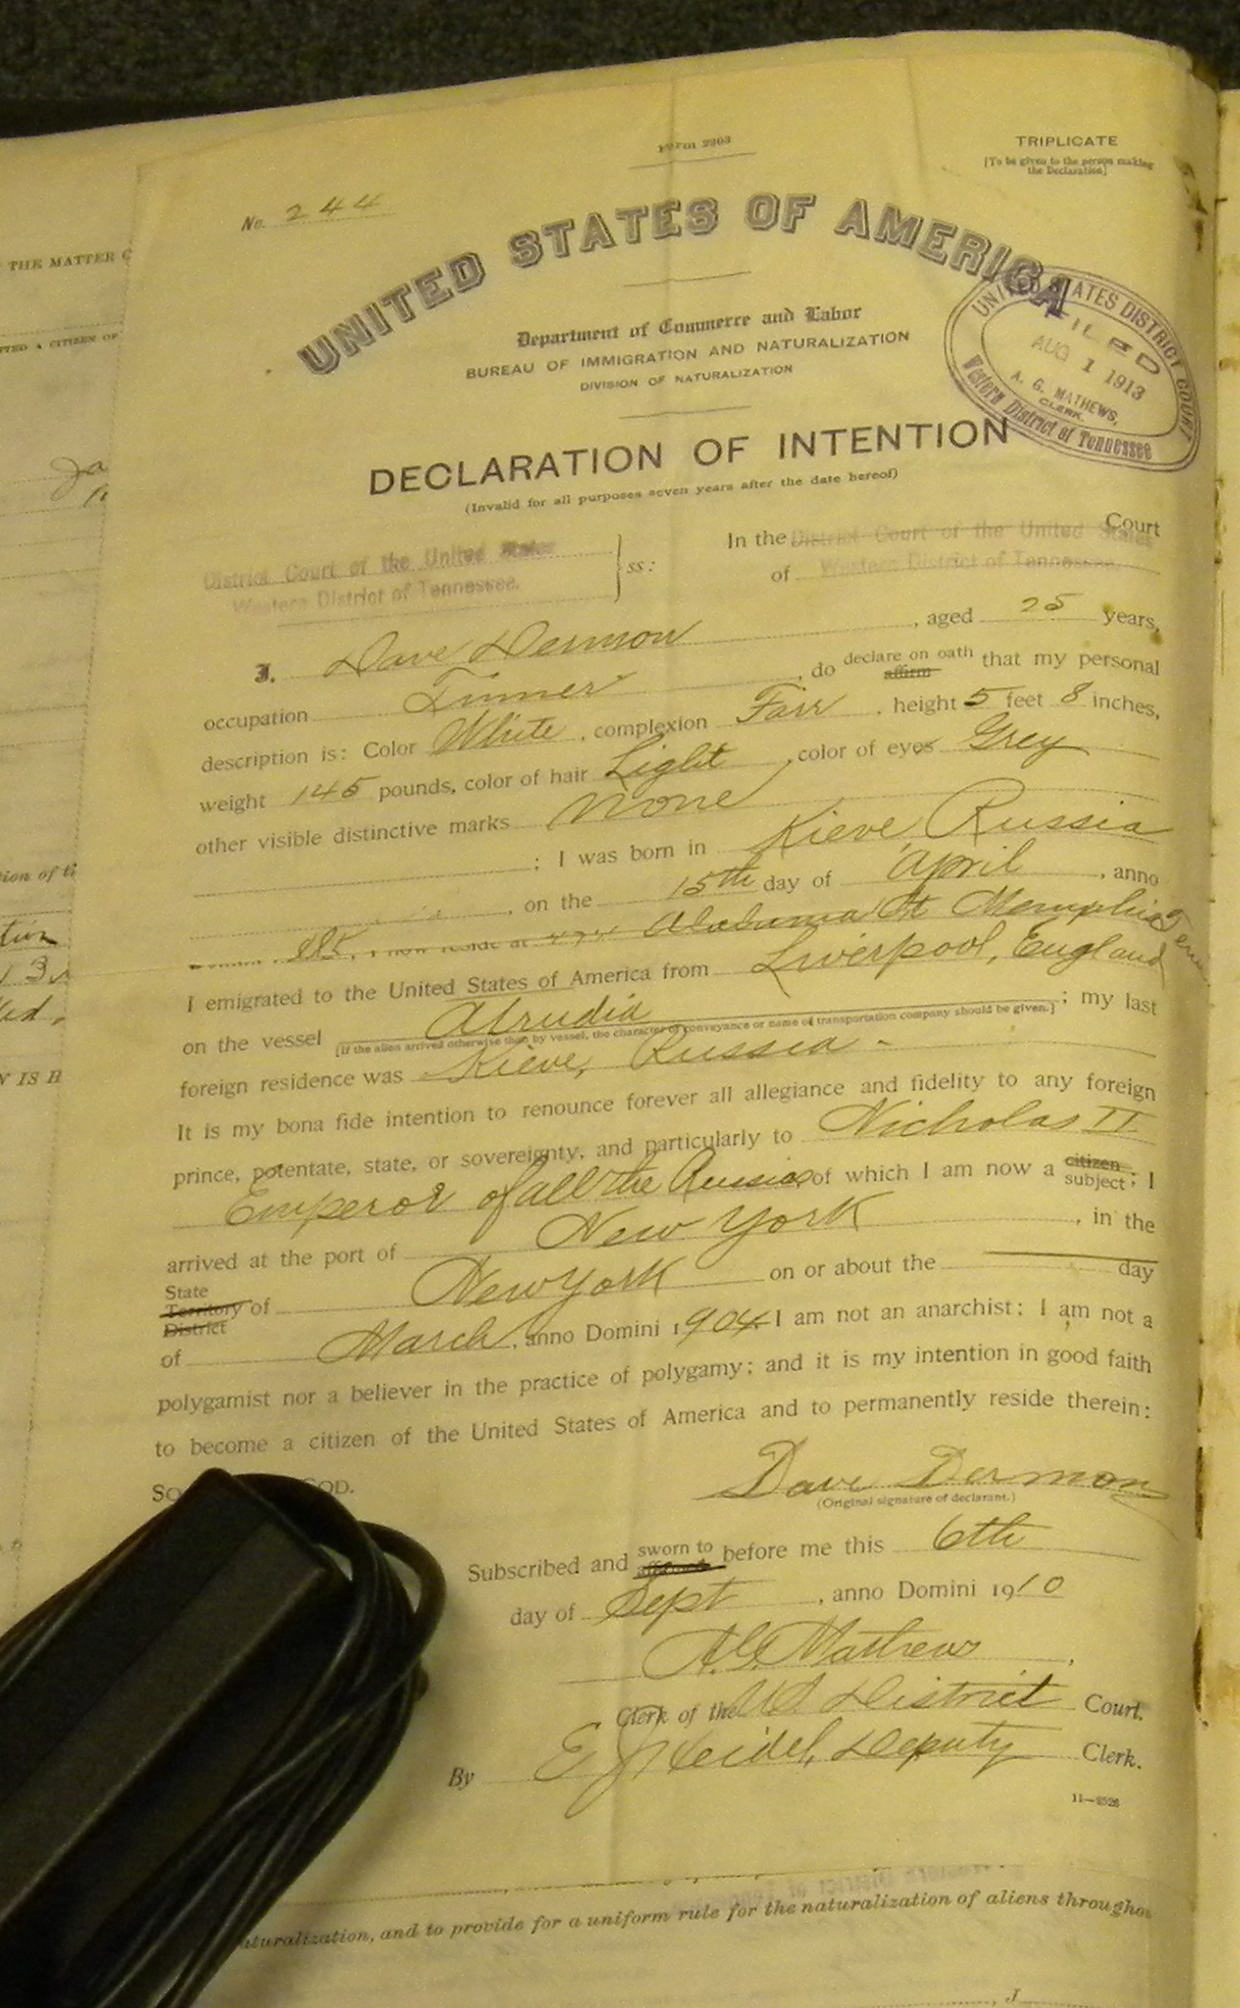 Form 2203
TRIPLICATE
[To be given to the person making
the Declaration]
No. 244
THE MATTER
UNITED STATES OF AMERICA
Department of Commerce and Labor
BUREAU OF IMMIGRATION AND NATURALIZATION
DIVISION OF NATURALIZATION
UNITED STATES DISTRICT COURT
FILED
AUG 1 1913
A. G. MATHEWS,
CLERK.
Western District of Tennessee
DECLARATION OF INTENTION
(Invalid for all purposes seven years after the date hereof)
District Court of the United States
Western District of Tennessee.
ss:
In the District Court of the United States Court
of Western District of Tennessee.
I, Dave Dermon, aged 25 years,
occupation Tinner, do declare on oath affirm that my personal
description is: Color White, complexion Fair, height 5 feet 8 inches,
weight 145 pounds, color of hair Light, color of eyes Grey
other visible distinctive marks None
; I was born in Kieve, Russia
, on the 15th day of April, anno
I now reside at Alabama St Memphis Tenn
I emigrated to the United States of America from Liverpool, England
on the vessel Atrudia ; my last
[If the alien arrived otherwise than by vessel, the character of conveyance or name of transportation company should be given.]
foreign residence was Kieve, Russia -
It is my bona fide intention to renounce forever all allegiance and fidelity to any foreign
prince, potentate, state, or sovereignty, and particularly to Nicholas II
Emperor of all the Russias, of which I am now a citizen subject; I
arrived at the port of New York, in the
State Territory District of New York on or about the day
of March, anno Domini 1904 I am not an anarchist; I am not a
polygamist nor a believer in the practice of polygamy; and it is my intention in good faith
to become a citizen of the United States of America and to permanently reside therein:
So GOD.
Dave Dermon
(Original signature of declarant.)
Subscribed and sworn to affirmed before me this 6th
day of Sept, anno Domini 1910
A. G. Mathews.
Clerk of the US District Court.
By E J Heidel, Deputy Clerk.
11—2526
naturalization, and to provide for a uniform rule for the naturalization of aliens throughou